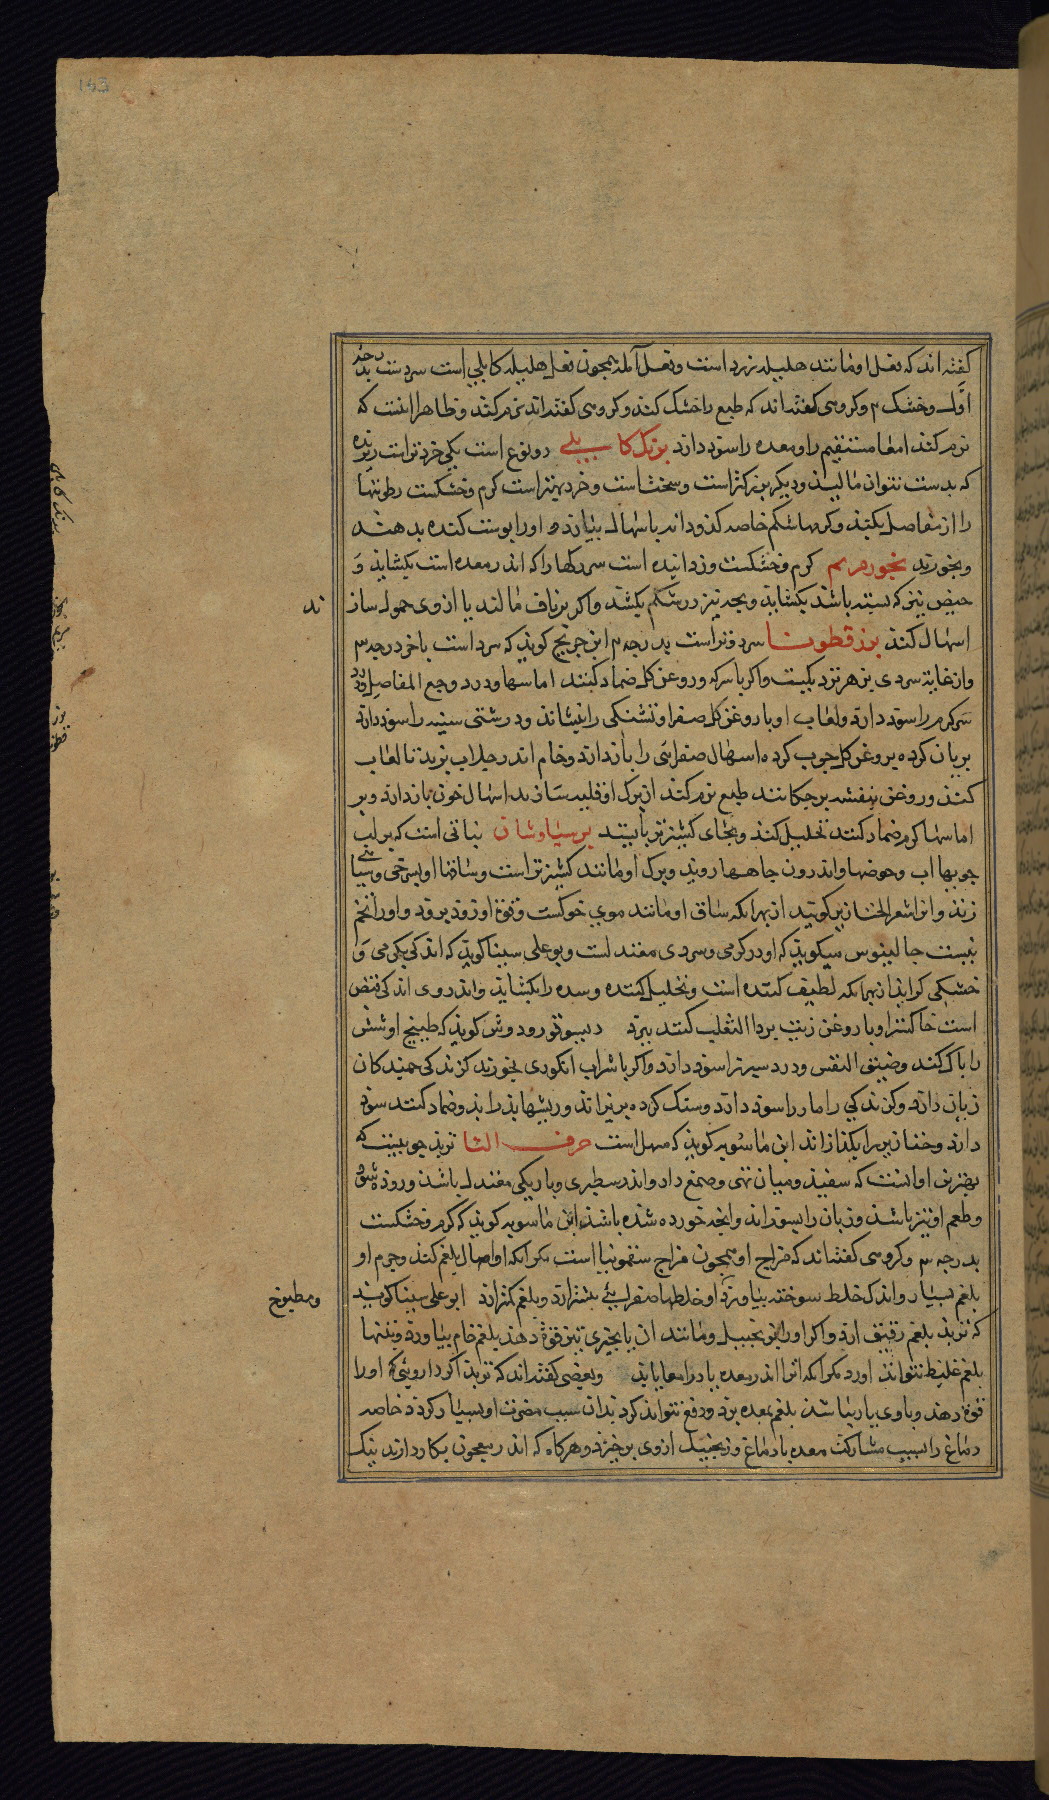 143
گفته اند که فعل او مانند هلیله زرد است و فعل آمله همچون فعل هلیله کابلی است سردست بدرجه
اوّل و خشک م و کروهی گفته اند که طبع را خشک کند و کروهی گفته اند نرم کند و ظاهر اانست که
نرم کند امعا مستقیم را و معده را سوذ دارد برنک کابلی دو نوع است یکی خردتر است
که بدست نتوان مالیذ و دیکر بزرکتر است و سخت است و خرد بهتر است کرم و خشکست رطوبتها
را از مفاصل بکشد و کرمها شکم خاصه کذودانه باسهال بیارد و او را بوست کنده بدهند
و بخورند بخور مریم کرم و خشکست و زداینده است سر رکها را که اندر معده است بکشایذ و
حیض بینی که بسته باشد بکشاید و بچه تیز در شکم بکشد و اکر بر ناف مالند یا از وی حموله ساز
ند
اسهال کند بزرقطونا سرد و تر است بدرجه م ابن جریج کویذ که سرد است باخر درجه م
و از غایة سردی بزهر نزدیکست و اکر با سرکه و روغن کل ضماد کنند اماسها و درد وجع المفاصل و درد
سر کرم را سوذ دارد و لعاب او با روغن کل صفرا و تشنکی را بنشاند و درشتی سینه را سوذ دارد
بریان کرده بروغن کل چرب کرده اسهال صفرایی را باز دارد و خام اندر جلاب بزند تا لعاب
کند و روغن بنفشه برچکانند طبع نرم کند از برک او قلیه سازند اسهال خون باز دارد و بر
اماسها کرم ضماد کنند تحلیل کند و بجای کشنیز تر بابیند برسیاوشان نباتی است که بر لب
جویها اب و حوضها و اندرون جاهها رویذ و برک او مانند کشنیز تر است و ساقها او بسرخی و سیاهی
زند و انرا شعر الخنازیر کویند از بهر انکه ساق او مانند موی خوکست و قوة او زوذ برود و او را تخم
نیست جالینوس میکویذ که او در کرمی و سردی معتدلست و بوعلی سینا کویذ که اندکی بکرمی و
خشکی کراید از بهر انکه لطیف کننده است و تحلیل کننده و سده را بکشاید و اندر وی اندکی قبض
است خاکستر او با روغن زیت بر داالثعلب کنند ببرد دیسوقوریدوش کویذ که طبیخ او شش
را باک کند و ضیق النفس و درد سپرز را سوذ دارد و اکر با شراب انکوری بخورند کزندکی جمندکان
زیان دارد و کزندکی را مار را سوذ دارد و سنک کرده بریزاند و ریشها بذ را بذو ضماد کنند سوذ
دارد و خنازیر را بکذازاند ابن ماسویه کویذ که مسهل است حرف التا تربذ چوبیست که
بهترین او انست که سفیذ و میان تهی و صمغ دار و اندر سطبری و باریکی معتدل باشذ و روذه شود
و طعم او تیز باشذ و زبان را بسوزاند و انچه خورده شده باشد ابن ماسویه کویذ که کرم و خشکست
بدرجه م و کروهی گفته اند که مزاج او همچون مزاج سقمونیا است مکر انکه او اسهال بلغم کند و جرم او
بلغم بسیار و اندک خلط سوخته بیاورد او خلطها صفرایی بیشتر ارد و بلغم کمتر ارد ابو علی سینا کویذ
و مطبوخ
که تربذ بلغم رقیق ارد و اکر او را زنجبیل و مانند ان با چیزی تیز قوة دهند بلغم خام بیاورد و تنها
بلغم غلیظ نتواند اورد مکر انکه انرا اندر معده یا در امعا یابد و بعضی گفته اند که تربذ اکر داروئی که او را
قوة دهد و با وی یار نباشد بلغم معده بزد و دفع نتواند کرد بدان سبب مضرت او بسیار کردذ خاصه
دماغ را بسبب مشارکت معده با دماغ و زنجبیل از وی برخیزد و هرکاه که اندر معجون بکار دارند نیک
برنک کابلی
بخور مریم
بزر قطونا